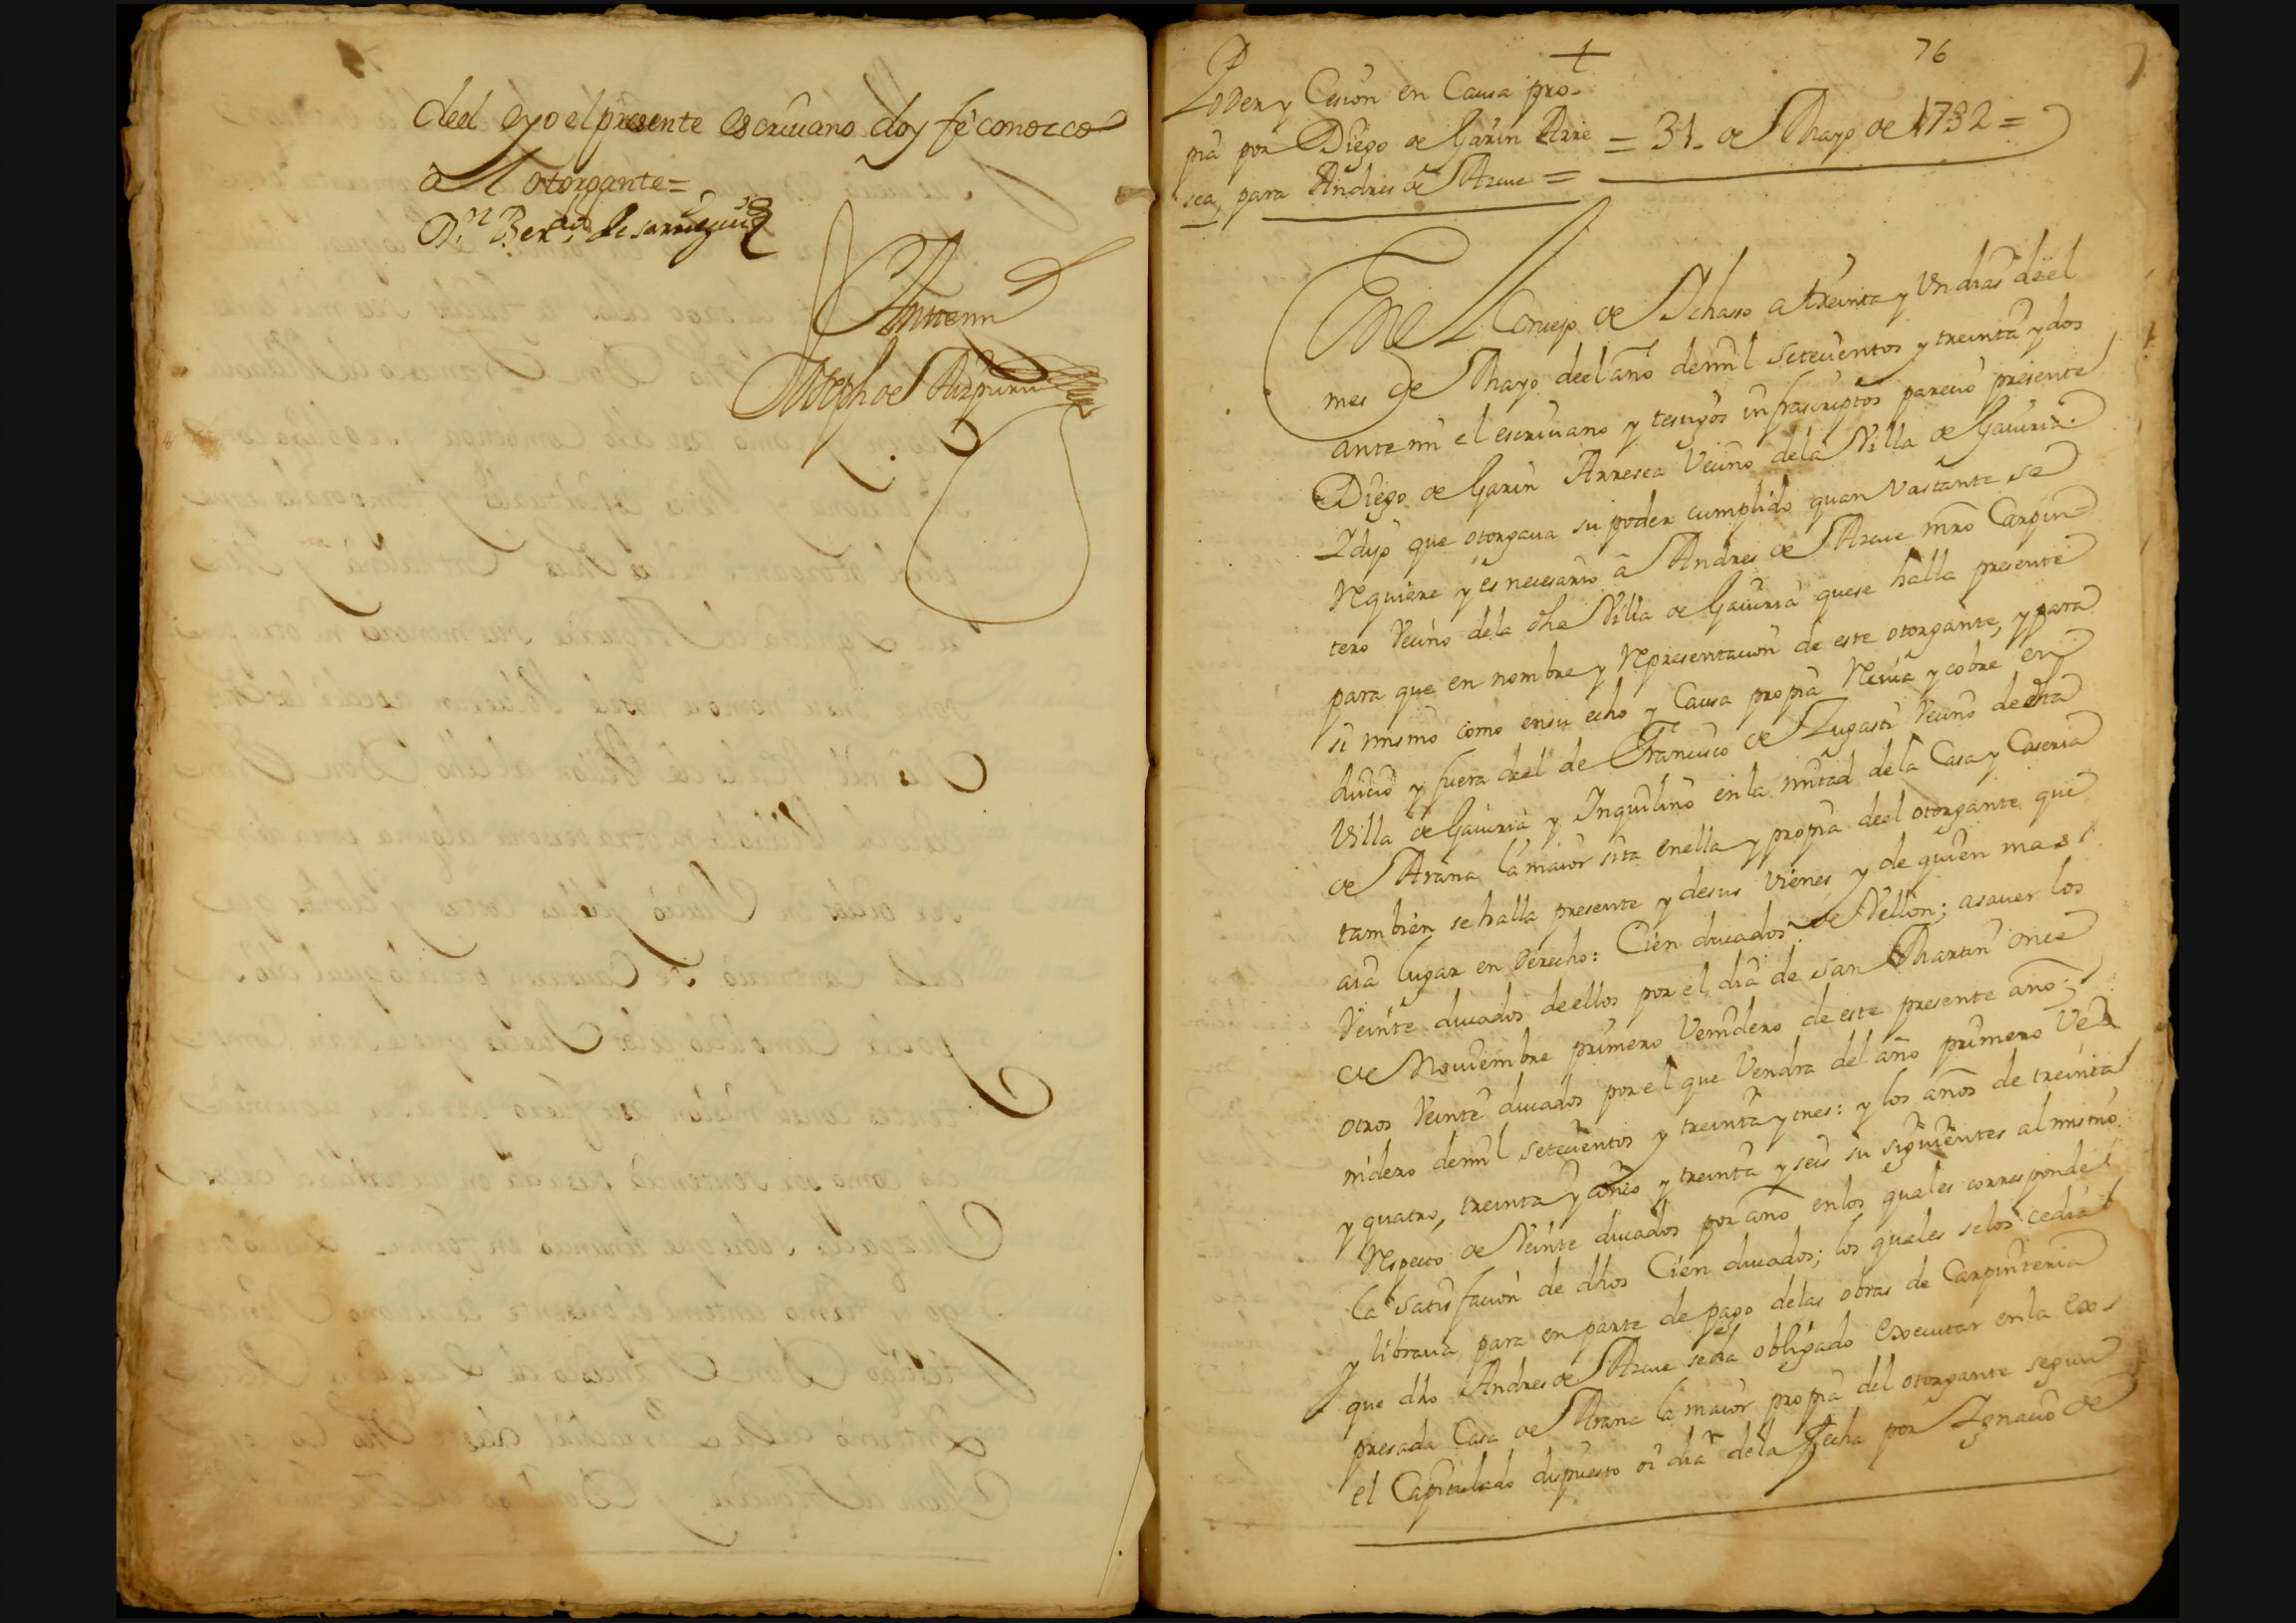 deel eyo el presente escriuano doy fe conozco
a el otorgante=
D.n Ber.do de
Antemi
Joseph de Aizpuru
76
Poder y Cesion en Causa pro-
pia por Diego de Garin Arre
sea, para Andres de Azcue =
= 31. de Mayo de 1732 =
En el Conzejo de Ichasso a treinta y Un dias deel
mes de Mayo deel año demil setecientos y treinta y dos
ante mi el escriuano y testigos infrascriptos parecio presente
Diego de Garin Arresea Vecino dela Villa de Gauiria.
Y dijo que otorgaua su poder cumplido quan Vastante se
Requiere y es necesario â Andres de Azcue mro Carpin-
tero Vecino dela dha Villa de Gauiria quese halla presente
para que en nombre y Representacion de este otorgante, y para
si mismo como ensu echo y Causa propia Reciua y cobre en
Juicio y fuera deel de Francisco de Lugasti Vecino de dha
Villa de Gauiria y Inquilino en la mitad dela Casa y Caseria
de Arana la maior sita enella y propia deel otorgante que
tambien se halla presente y desus Vienes y de quien mas
aia lugar en Derecho: Cien ducados de Vellon; asauer los
Veinte ducados deellos por el dia de san Martin once
de Nouiembre primero Venidero de este presente año;
otros Veinte ducados por el que Vendra del año primero Ve
nidero demil setecientos y treinta y tres: y los años de treinta
y quatro, treinta y cinco y treinta y seis su siguientes al mismo
Respecto de Veinte ducados por año enlos quales corresponde
la satisfacion de dhos Cien ducados; los quales selos cedia
y libraua para en parte de pago delas obras de Carpinteria
que dho Andres de Azcue sera obligado Executar enla Ex-
presada Casa de Arana la maior propia del otorgante segun
el Capitulado dispuesto oi dia dela Fecha por Ignacio de